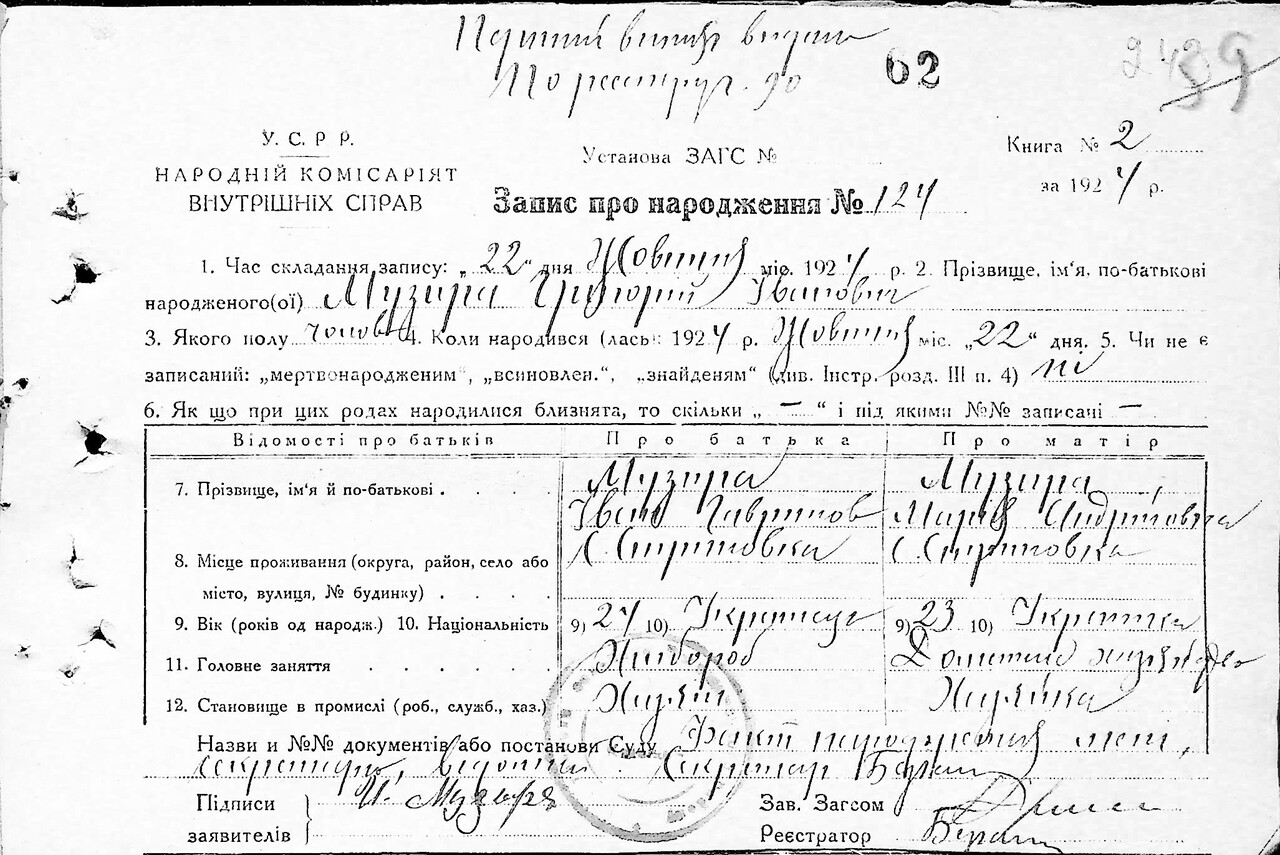 Перший випис видано
По реєстру г. 90
62
У. С. Р Р.
НАРОДНІЙ КОМІСАРІЯТ
ВНУТРІШНІХ СПРАВ
Установа ЗАГС №
Книга № 2
за 1924 р.
Запис про народження № 124
1. Час складання запису: „22“ дня Жовтня міс. 1924 р. 2. Прізвище, ім'я, по-батькові
народженого(ої) Музира Григорий Іванович
3. Якого полу чолов 4. Коли народився (лась): 1924 р. Жовтня міс. „22“ дня. 5. Чи не є
записаний: „мертвонародженим“, „всиновлен.“, „знайденям“ (див. Інстр. розд. III п. 4) ні
6. Як що при цих родах народилися близнята, то скільки „ — “ і під якими №№ записані —
Відомості про батьків Про батька Про матір
7. Прізвище, ім'я й по-батькові . . . . Музира Музира,
Іван Гаврилов Марія Андріівна
8. Місце проживання (округа, район, село або С. С. 
місто, вулиця, № будинку) . . . .
9. Вік (років од народж.) 10. Національність 9) 24 10) Украінець 9) 23 10) Украінка
11. Головне заняття . . . . . . Хлібороб Домашнє хазяйство
12. Становище в промислі (роб., служб., хаз.) Хазяін Хазяйка
Назви и №№ документів або постанови Суду Факт народження мені,
секретарю, відомий. Секретар
Підписи И. Музыря Зав. Загсом
заявителів Реєстратор